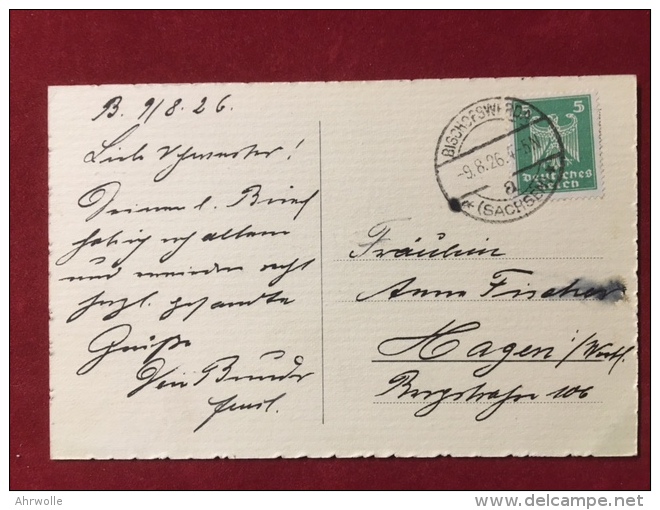 B. 9/8.26.
Liebe Schwester!
Deinen l. Brief
hab ich erhalten
und werden recht
herzl. gesandte
Grüße
Dein Bruder
Emil.
BISCHOFSWERDA
-9.8.26.
a
* (SACHSEN)
5
Deutsches
Fräulein
Anna Fischer
Hagen i/Westf.
Bergstraße 106
Ahrwolle
delcampe.net